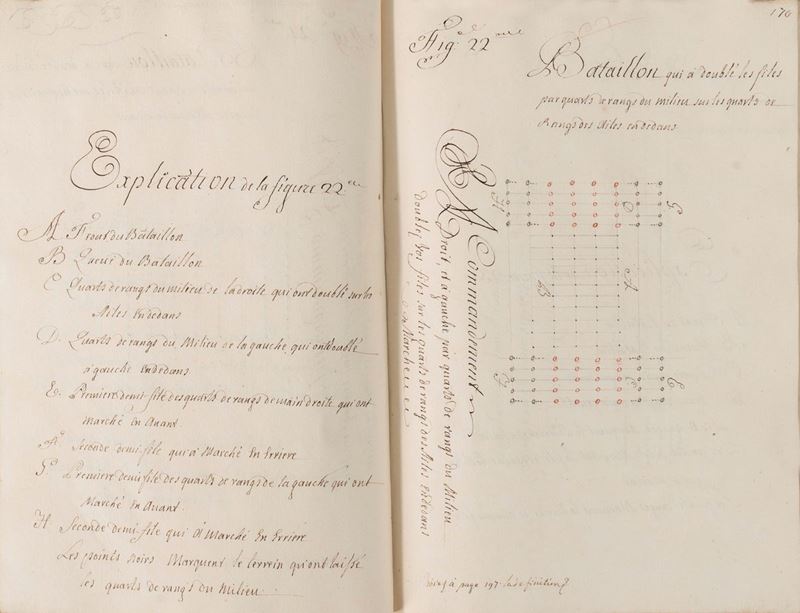 Explication de la figure 22me
A Front du Bataillon
B Queue du Bataillon
C Quarts de rangs du milieu de la droite qui ont doublé sur les
Ailes en dedans
D. Quarts de rangs du Milieu de la gauche qui ont doublé
à gauche en dedans
E. Premiere demi file des quarts de rangs de main droite qui ont
Marché en Avant
F. Seconde demi file qui a Marché En Erriere
G. Premiere demi file des quarts de rangs de la gauche qui ont
Marché en Avant
H. Seconde demi file qui a Marché En Erriere
Les points noirs Marquent le terrein qu'ont laissé
les quarts de rangs du Milieu
170
Fig. 22me
Bataillon qui a doublé les files
par quarts de rangs du milieu sur les quarts de
Rangs des Ailes en dedans
Commandement
A Droit, et à gauche par quarts de rangs du Milieu
doublez vos files sur les quarts de rangs des Ailes en dedans
Marche
H
G
C
A
B
E
à page 197